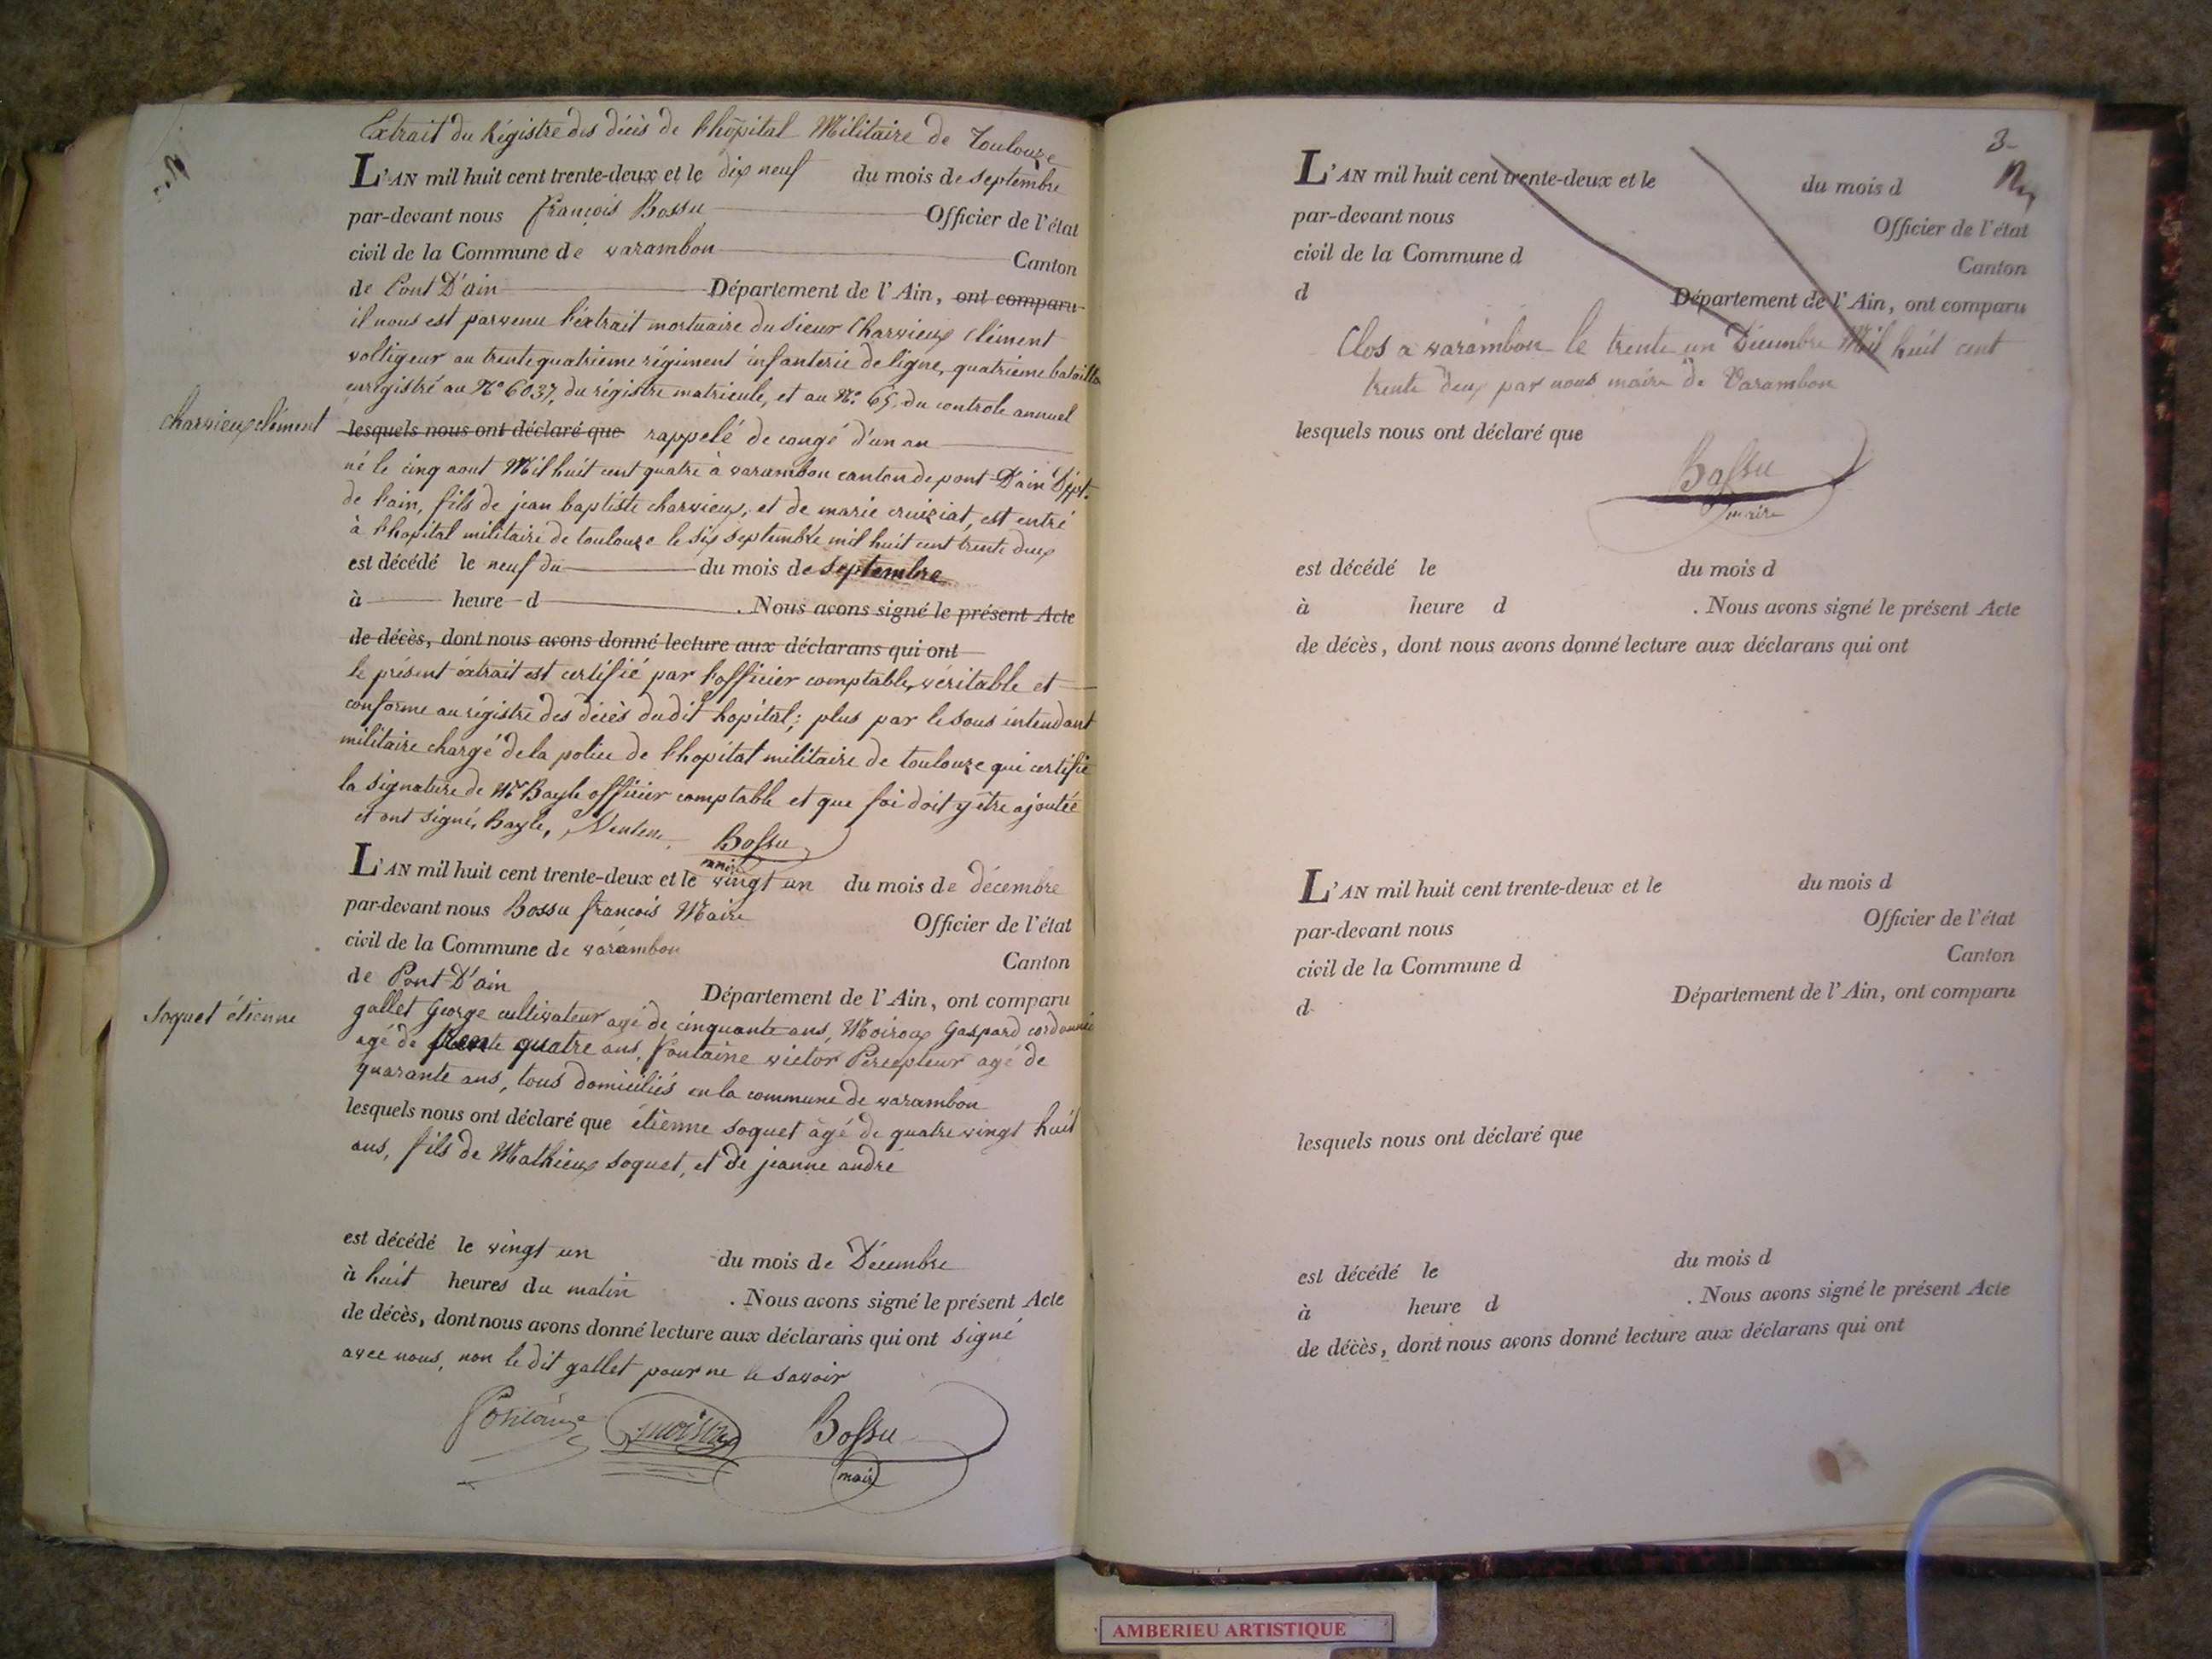 Extrait du Régistre des décès de l'hôpital Militaire de Toulouze
L'AN mil huit cent trente-deux et le dix neuf du mois de septembre
par-devant nous françois Bossu Officier de l'état
civil de la Commune de varambon Canton
de Pont D'ain Département de l'Ain, ont comparu
il nous est parvenu l'éxtrait mortuaire du sieur Charvieux Clément
voltigeur au trente quatrieme régiment infanterie de ligne, quatrieme bataillon
enrégistré au N° 6037, du régistre matricule, et au N° 65, du controle annuel
charvieux clément
lesquels nous ont déclaré que rappelé de congé d'un an
né le cinq aout Mil huit cent quatre à varambon canton de pont D'ain Dépt.
de l'ain, fils de jean baptiste charvieux, et de marie cruiziat, est entré
à l'hopital militaire de toulouze le six septembre mil huit cent trente deux
est décédé le neuf du du mois de septembre
à heure d . Nous avons signé le présent Acte
de décès, dont nous avons donné lecture aux déclarans qui ont
le présent éxtrait est certifié par l'officier comptable, véritable et
conforme au régistre des décès dudit hopital; plus par le sous intendant
militaire chargé de la police de l'hopital militaire de toulouze qui certifie
la signature de Mr Bayle officier comptable et que foi doit y être ajoutée
et ont signé, Bayle,
Bossu
maire
L'AN mil huit cent trente-deux et le vingt un du mois de décembre
par-devant nous Bossu françois Maire Officier de l'état
civil de la Commune de varambon Canton
de Pont D'ain Département de l'Ain, ont comparu
Soquet étienne
gallet George cultivateur agé de cinquante ans, Moiroux Gaspard cordonnier
agé de trente quatre ans, fontaine victor Percepteur agé de
quarante ans, tous domiciliés en la commune de varambon
lesquels nous ont déclaré que étienne soquet âgé de quatre vingt huit
ans, fils de Mathieux soquet, et de jeanne andré
est décédé le vingt un du mois de Décembre
à huit heures du matin . Nous avons signé le présent Acte
de décès, dont nous avons donné lecture aux déclarans qui ont signé
avec nous, non le dit gallet pour ne le savoir
fontaine moiroux Bossu
maire
3
L'AN mil huit cent trente-deux et le du mois d
par-devant nous Officier de l'état
civil de la Commune d Canton
d Département de l'Ain, ont comparu
Clos a varambon le trente un Décembre Mil huit cent
trente deux par nous maire de Varambon
lesquels nous ont déclaré que
Bossu
maire
est décédé le du mois d
à heure d . Nous avons signé le présent Acte
de décès, dont nous avons donné lecture aux déclarans qui ont
L'AN mil huit cent trente-deux et le du mois d
par-devant nous Officier de l'état
civil de la Commune d Canton
d Département de l'Ain, ont comparu
lesquels nous ont déclaré que
est décédé le du mois d
à heure d . Nous avons signé le présent Acte
de décès, dont nous avons donné lecture aux déclarans qui ont
AMBERIEU ARTISTIQUE